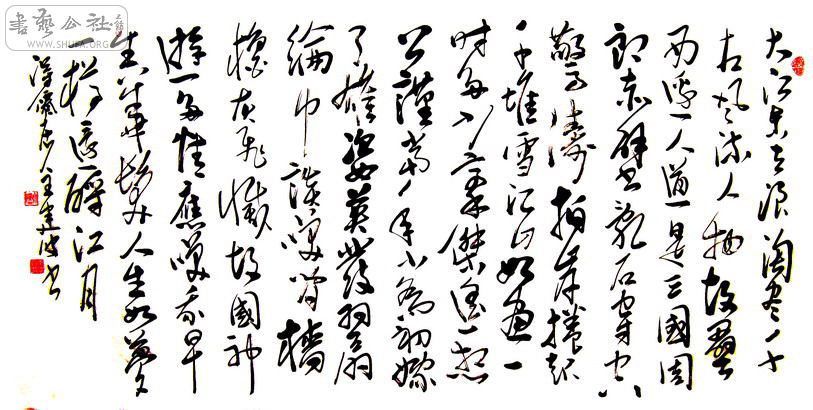 大江東去浪淘盡千
古風流人物故壘
西邊人道是三國周
郎赤壁亂石穿空
驚濤拍岸捲起
千堆雪江山如畫一
時多少豪傑遙想
公瑾當年小喬初嫁
了雄姿英發羽扇
綸巾談笑間檣
櫓灰飛滅故國神
遊多情應笑我早
生華髮人生如夢
一樽還酹江月
書藝公社
WWW.SHUFA.ORG